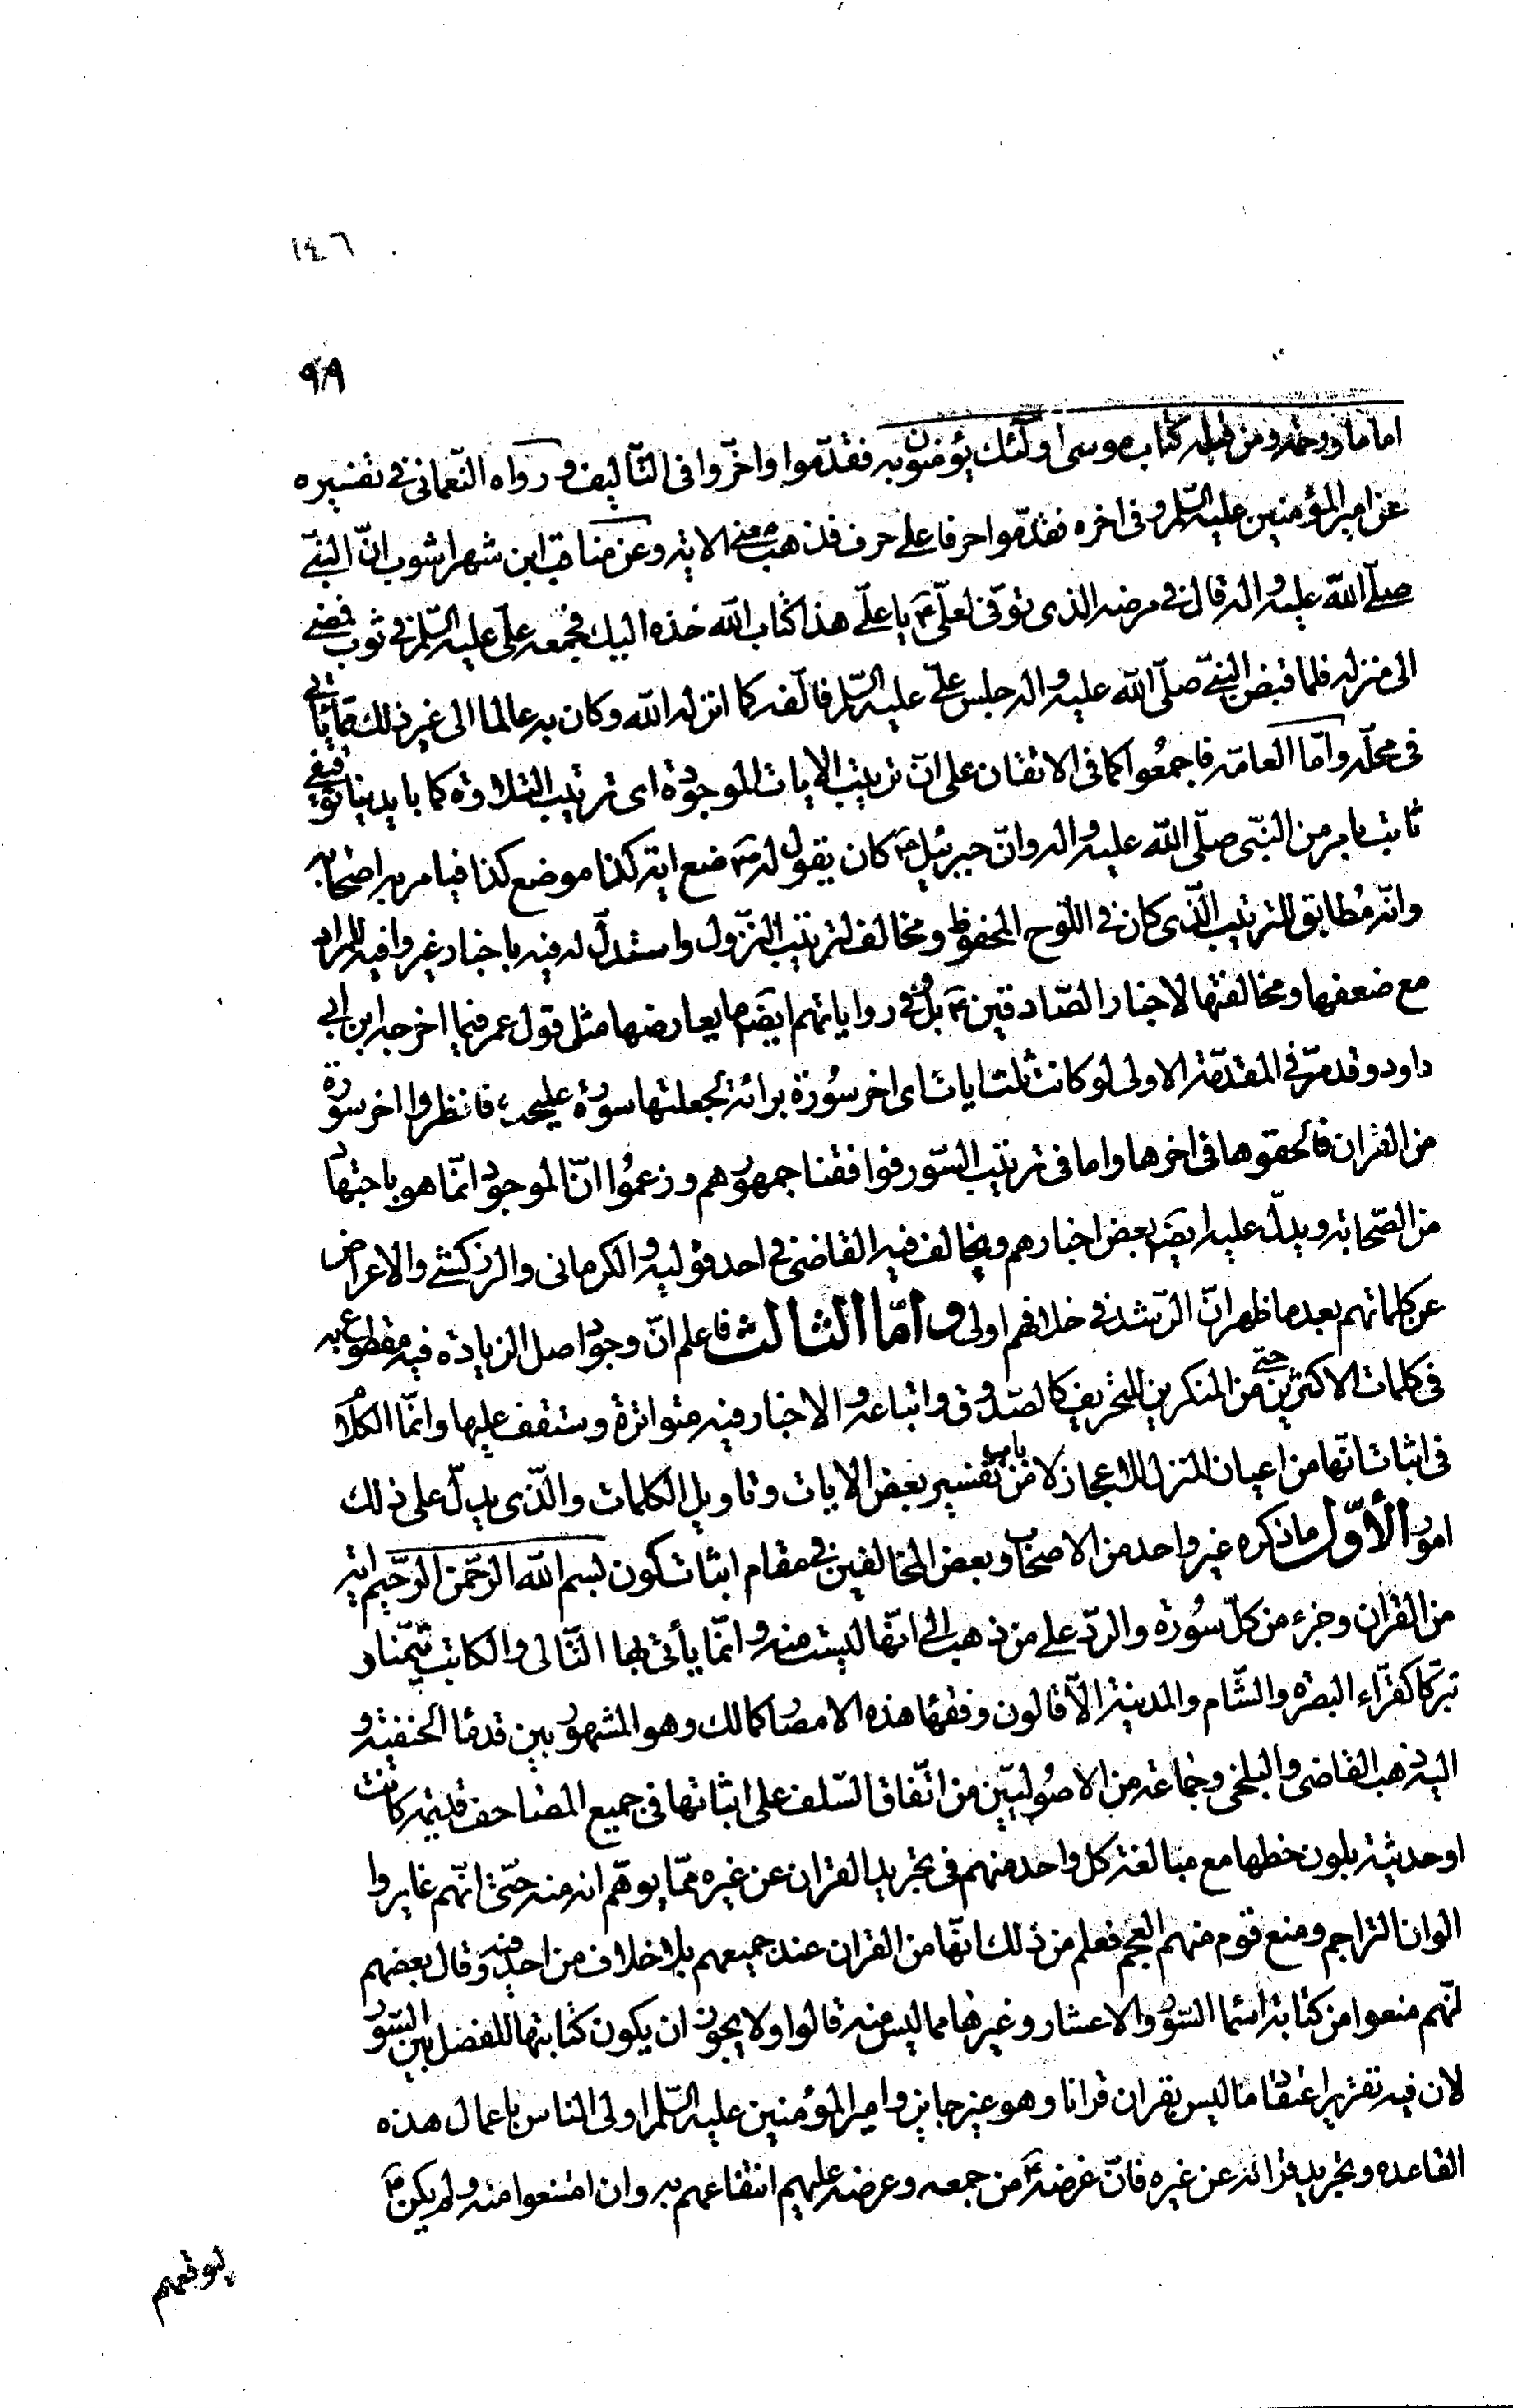 ١٤٦
٩٨
اماما ورحمة ومن قبله كتاب موسى اولئك يؤمنون به فقدّموا واخّروا فى التأليف ورواه النّعمانى فى تفسيره
عن امير المؤمنين عليه السّلم وفى اخره فقدّموا حرفا على حرف فذهب معنى الاية وعن مناقب ابن شهراشوب انّ النبىّ
صلّى اللّه عليه واله قال فى مرضه الذى توفّى لعلىّ ع يا علىّ هذا كتاب اللّه خذه اليك فجمعه علىّ عليه السّلم فى ثوب فمضى
الى منزله فلما قبض النبىّ صلّى اللّه عليه واله جلس علىّ عليه السّلم فالّفه كما انزله اللّه وكان به عالما الى غير ذلك مما يأتى
فى محلّه وامّا العامّة فاجمعُوا كما فى الاتقان على انّ ترتيب الايات الموجودة اى ترتيب التلاوة كما بايدينا توقيفى
ثابت بامر من النبّى صلّى اللّه عليه واله وانّ جبرئيل ع كان يقول له ص ضع اية كذا موضع كذا فيامر به اصحابه
وانّه مُطابق للترتيب الّذى كان فى اللّوح المحفوظ ومخالف لترتيب النّزول واستدلّ له فيه باخبار غير وافية للمرام
مع ضعفها ومخالفتها لاخبار الصّادقين ع بل وفى رواياتهم ايضا ما يعارضها مثل قول عمر فيما اخرجه ابن ابى
داود وقد مرّ فى المقدّمة الاولى لو كانت ثلث ايات اى اخر سُورة برائة لجعلتها سورة عليحدة فانظروا اخر سورة
من القران فالحقوها فى اخرها واما فى ترتيب السّور فوافقنا جمهورهم وزعمُوا انّ الموجود انّما هو باجتهاد
من الصّحابة ويدلّ عليه ايضا بعض اخبارهم ويخالف فيه القاضى فى احد قوليه والكرمانى والزركشى والاعراض
عن كلماتهم بعد ما ظهر انّ الرّشد فى خلافهم اولى وامّا الثالث فاعلم انّ وجود اصل الزيادة فيه مقطوع به
فى كلمات الاكثرين حتّى من المنكرين للتحريف كالصّدوق واتباعه والاخبار فيه متواترة وستقف عليها وانّما الكلام
فى اثبات انّها من اعيان المنزل للاعجاز لا من باب تفسير بعض الايات وتاويل الكلمات والّذى يدلّ على ذلك
امور الأوّل ما ذكره غير واحد من الاصحاب وبعض المخالفين فى مقام اثبات كون بسم اللّه الرّحمن الرّحيم اية
من القران وجزء من كلّ سُورة والردّ على من ذهب الى انّها ليست منه وانّما يأتى بها التّالى والكاتب تيمّنا و
تبرّكا كقرّاء البصرة والشّام والمدينة الّا قالون وفقهاء هذه الامصار كمالك وهو المشهور بين قدماء الحنفيّة و
اليه ذهب القاضى والبلخى وجماعة من الاصُوليّين من اتّفاق السّلف على اثباتها فى جميع المصاحف قديمة كانت
او حديثة بلون خطها مع مبالغة كل واحد منهم فى تجريد القران عن غيره ممّا يوهّم انه منه حتّى انّهم غايروا
الوان التراجم ومنع قوم منهم العجم فعلم من ذلك انّها من القران عند جميعهم بلا خلاف من احد فيه وقال بعضهم
انّهم منعوا من كتابة اسماء السّور والاعشار وغيرها مما ليس منه قالوا ولا يجوز ان يكون كتابتها للفصل بين السّور
لان فيه تقرير اعتقاد ما ليس بقران قرانا وهو غير جايز وامير المؤمنين عليه السّلم اولى الناس باعمال هذه
القاعده وتجريد قرائه عن غيره فانّ غرضه ع من جمعه وعرضه عليهم انتفاعهم به وان امتنعوا منه ولم يكن ع
ليوقعهم